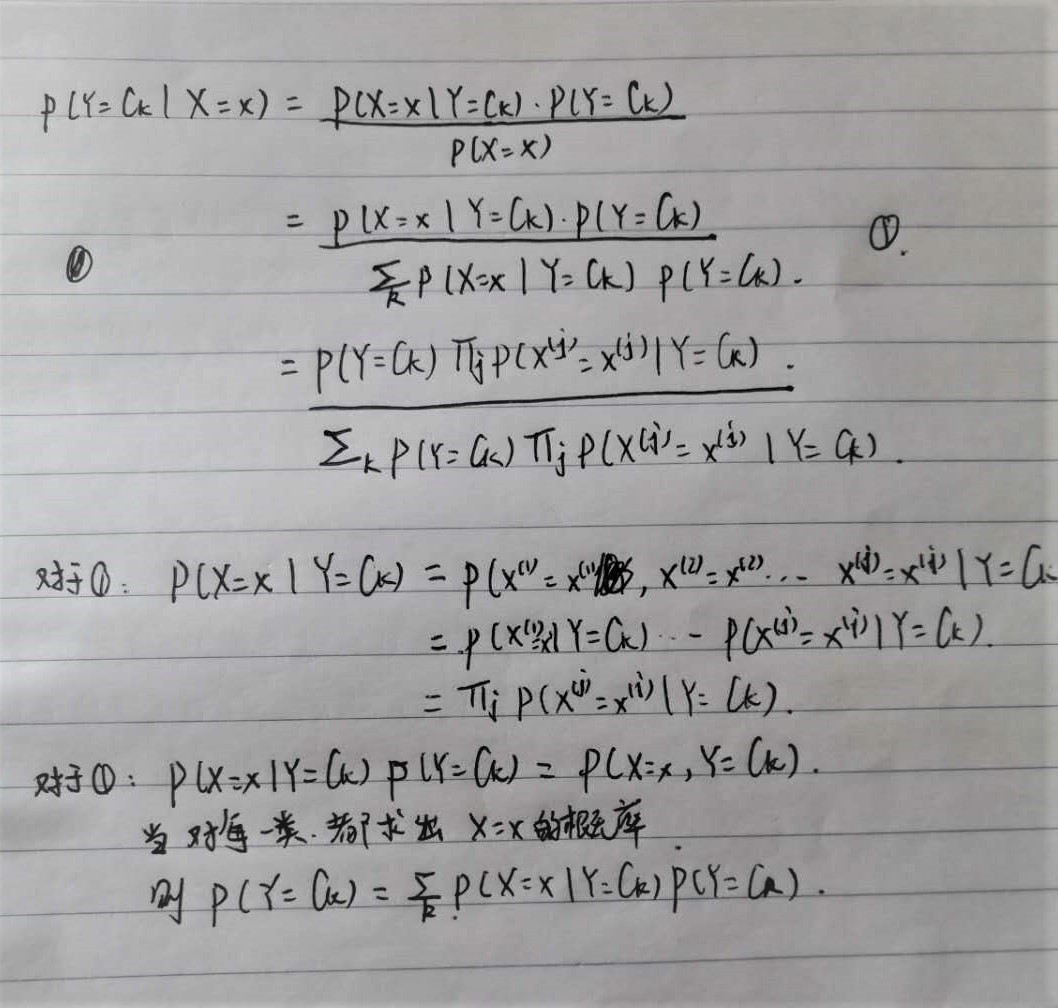 P(Y=Ck | X=x) = P(X=x|Y=Ck)·P(Y=Ck)
P(X=x)
= P(X=x | Y=Ck)·P(Y=Ck) ①.
Σk P(X=x | Y=Ck) P(Y=Ck).
= P(Y=Ck) Πj P(X^(j)=x^(j) | Y=Ck).
Σk P(Y=Ck) Πj P(X^(j)=x^(j) | Y=Ck).
对于①: P(X=x | Y=Ck) = P(X^(1)=x^(1), X^(2)=x^(2)... X^(j)=x^(j) | Y=Ck
= P(X^(1)=x|Y=Ck)... P(X^(j)=x^(j)|Y=Ck).
= Πj P(X^(j)=x^(j) | Y=Ck).
对于①: P(X=x|Y=Ck) P(Y=Ck) = P(X=x, Y=Ck).
当对每一类.都求出 X=x的概率.
则 P(Y=Ck) = Σk P(X=x|Y=Ck)P(Y=Ck).